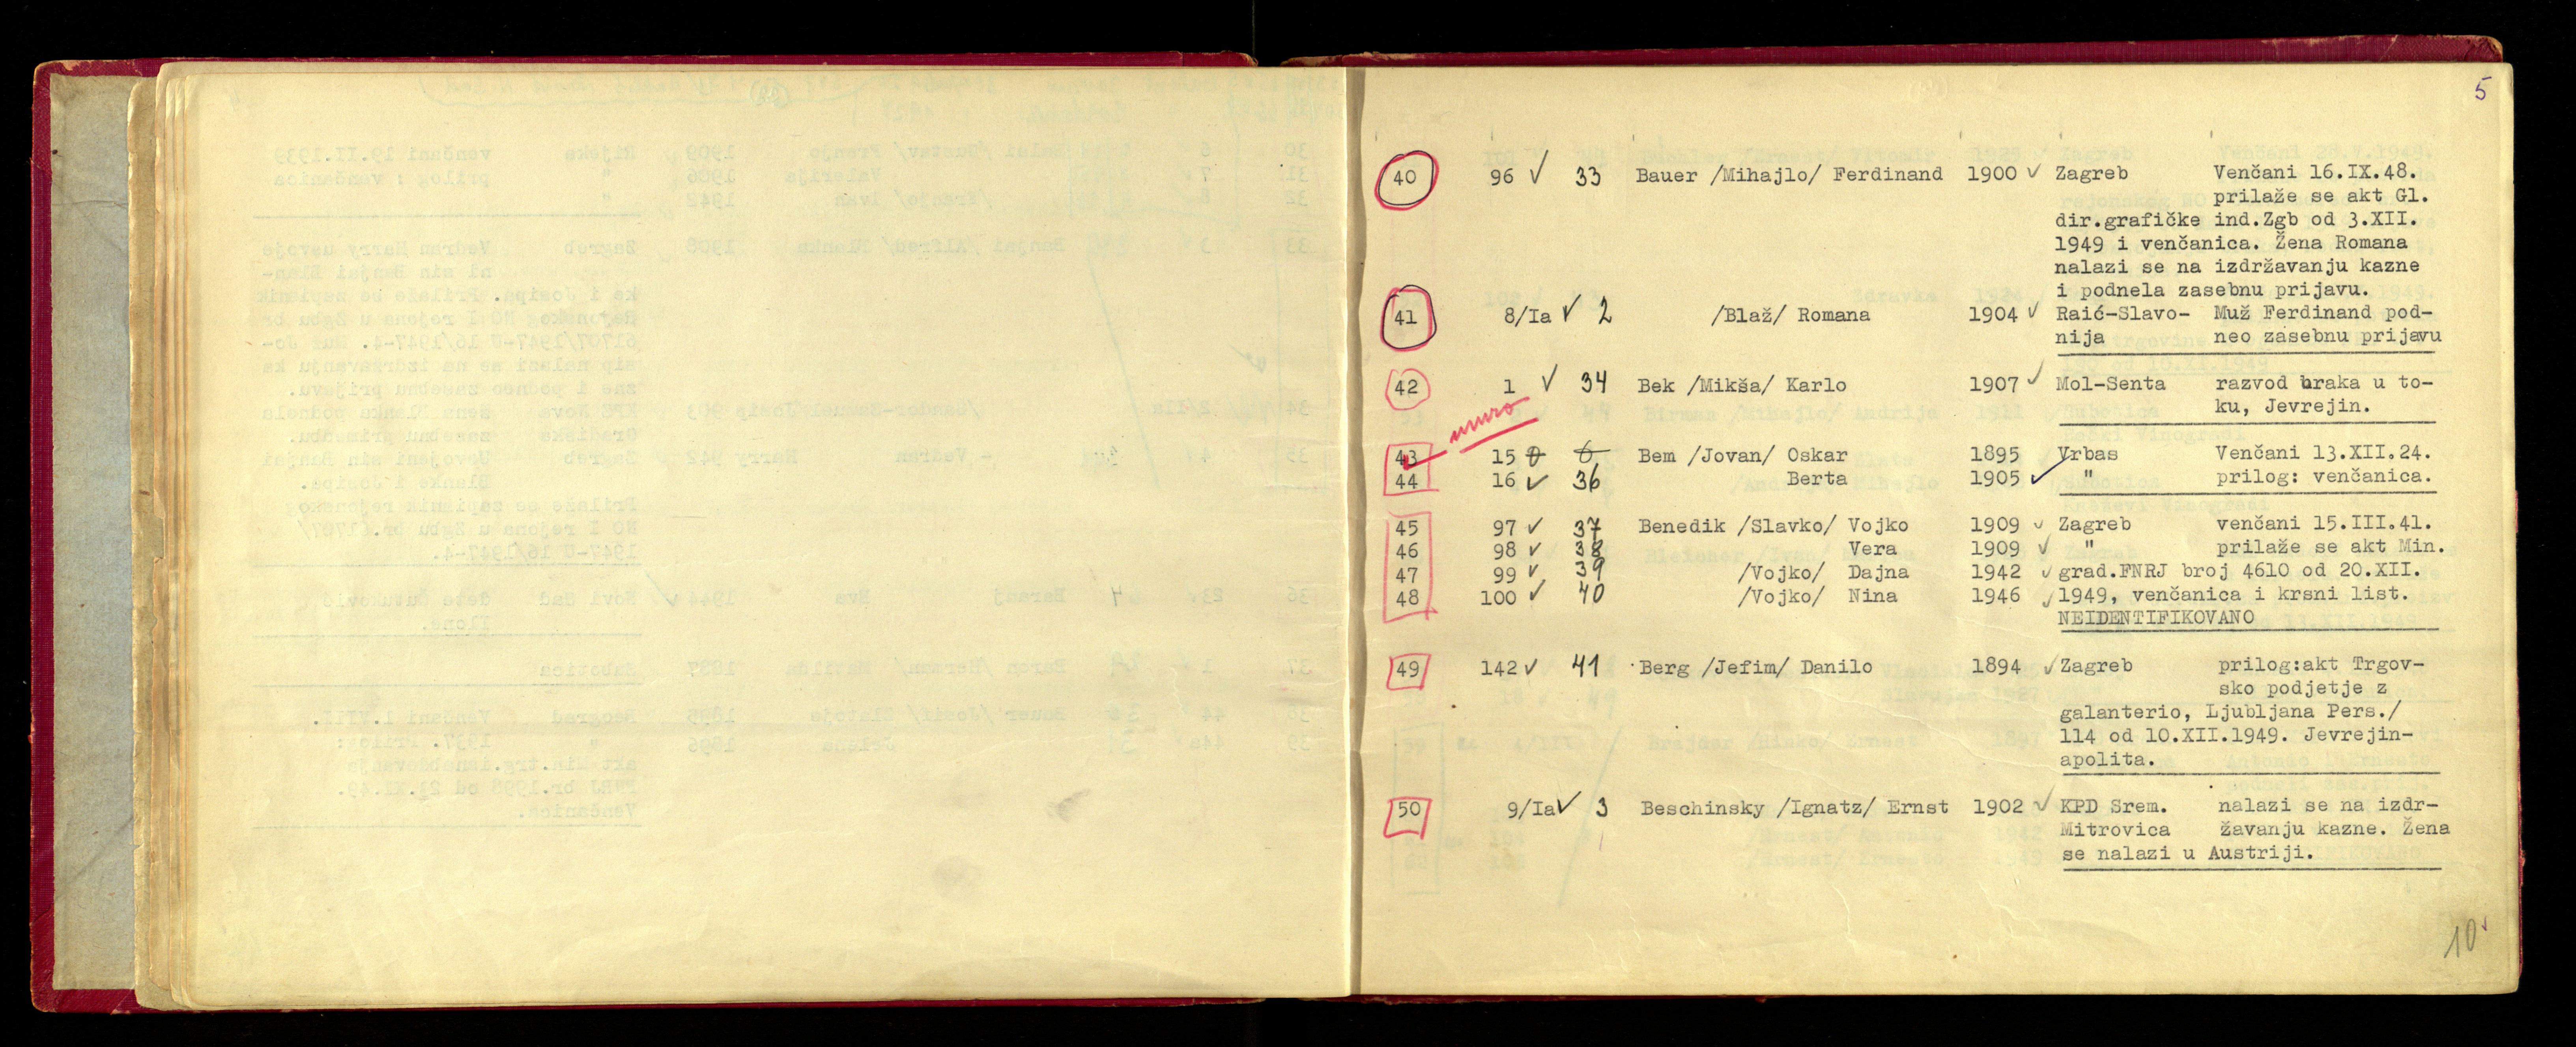 5
40 96 ✓ 33 Bauer /Mihajlo/ Ferdinand 1900 ✓ Zagreb Venčani 16.IX.48.
prilaže se akt Gl.
dir.grafičke ind.Zgb od 3.XII.
1949 i venčanica. Žena Romana
nalazi se na izdržavanju kazne
i podnela zasebnu prijavu.
41 8/Ia ✓ 2 /Blaž/ Romana 1904 ✓ Raić-Slavo- Muž Ferdinand pod-
nija neo zasebnu prijavu
42 1 ✓ 34 Bek /Mikša/ Karlo 1907 ✓ Mol-Senta razvod braka u to-
ku, Jevrejin.
umro
43 15 Bem /Jovan/ Oskar 1895 Vrbas Venčani 13.XII.24.
44 16 ✓ 36 Berta 1905 ✓ " prilog: venčanica.
45 97 ✓ 37 Benedik /Slavko/ Vojko 1909 ✓ Zagreb venčani 15.III.41.
46 98 ✓ 38 Vera 1909 ✓ " prilaže se akt Min.
47 99 ✓ 39 /Vojko/ Dajna 1942 ✓ grad.FNRJ broj 4610 od 20.XII.
48 100 ✓ 40 /Vojko/ Nina 1946 ✓ 1949, venčanica i krsni list.
NEIDENTIFIKOVANO
49 142 ✓ 41 Berg /Jefim/ Danilo 1894 ✓ Zagreb prilog:akt Trgov-
sko podjetje z
galanterio, Ljubljana Pers./
114 od 10.XII.1949. Jevrejin-
apolita.
50 9/Ia ✓ 3 Beschinsky /Ignatz/ Ernst 1902 ✓ KPD Srem. nalazi se na izdr-
Mitrovica žavanju kazne. Žena
se nalazi u Austriji.
10